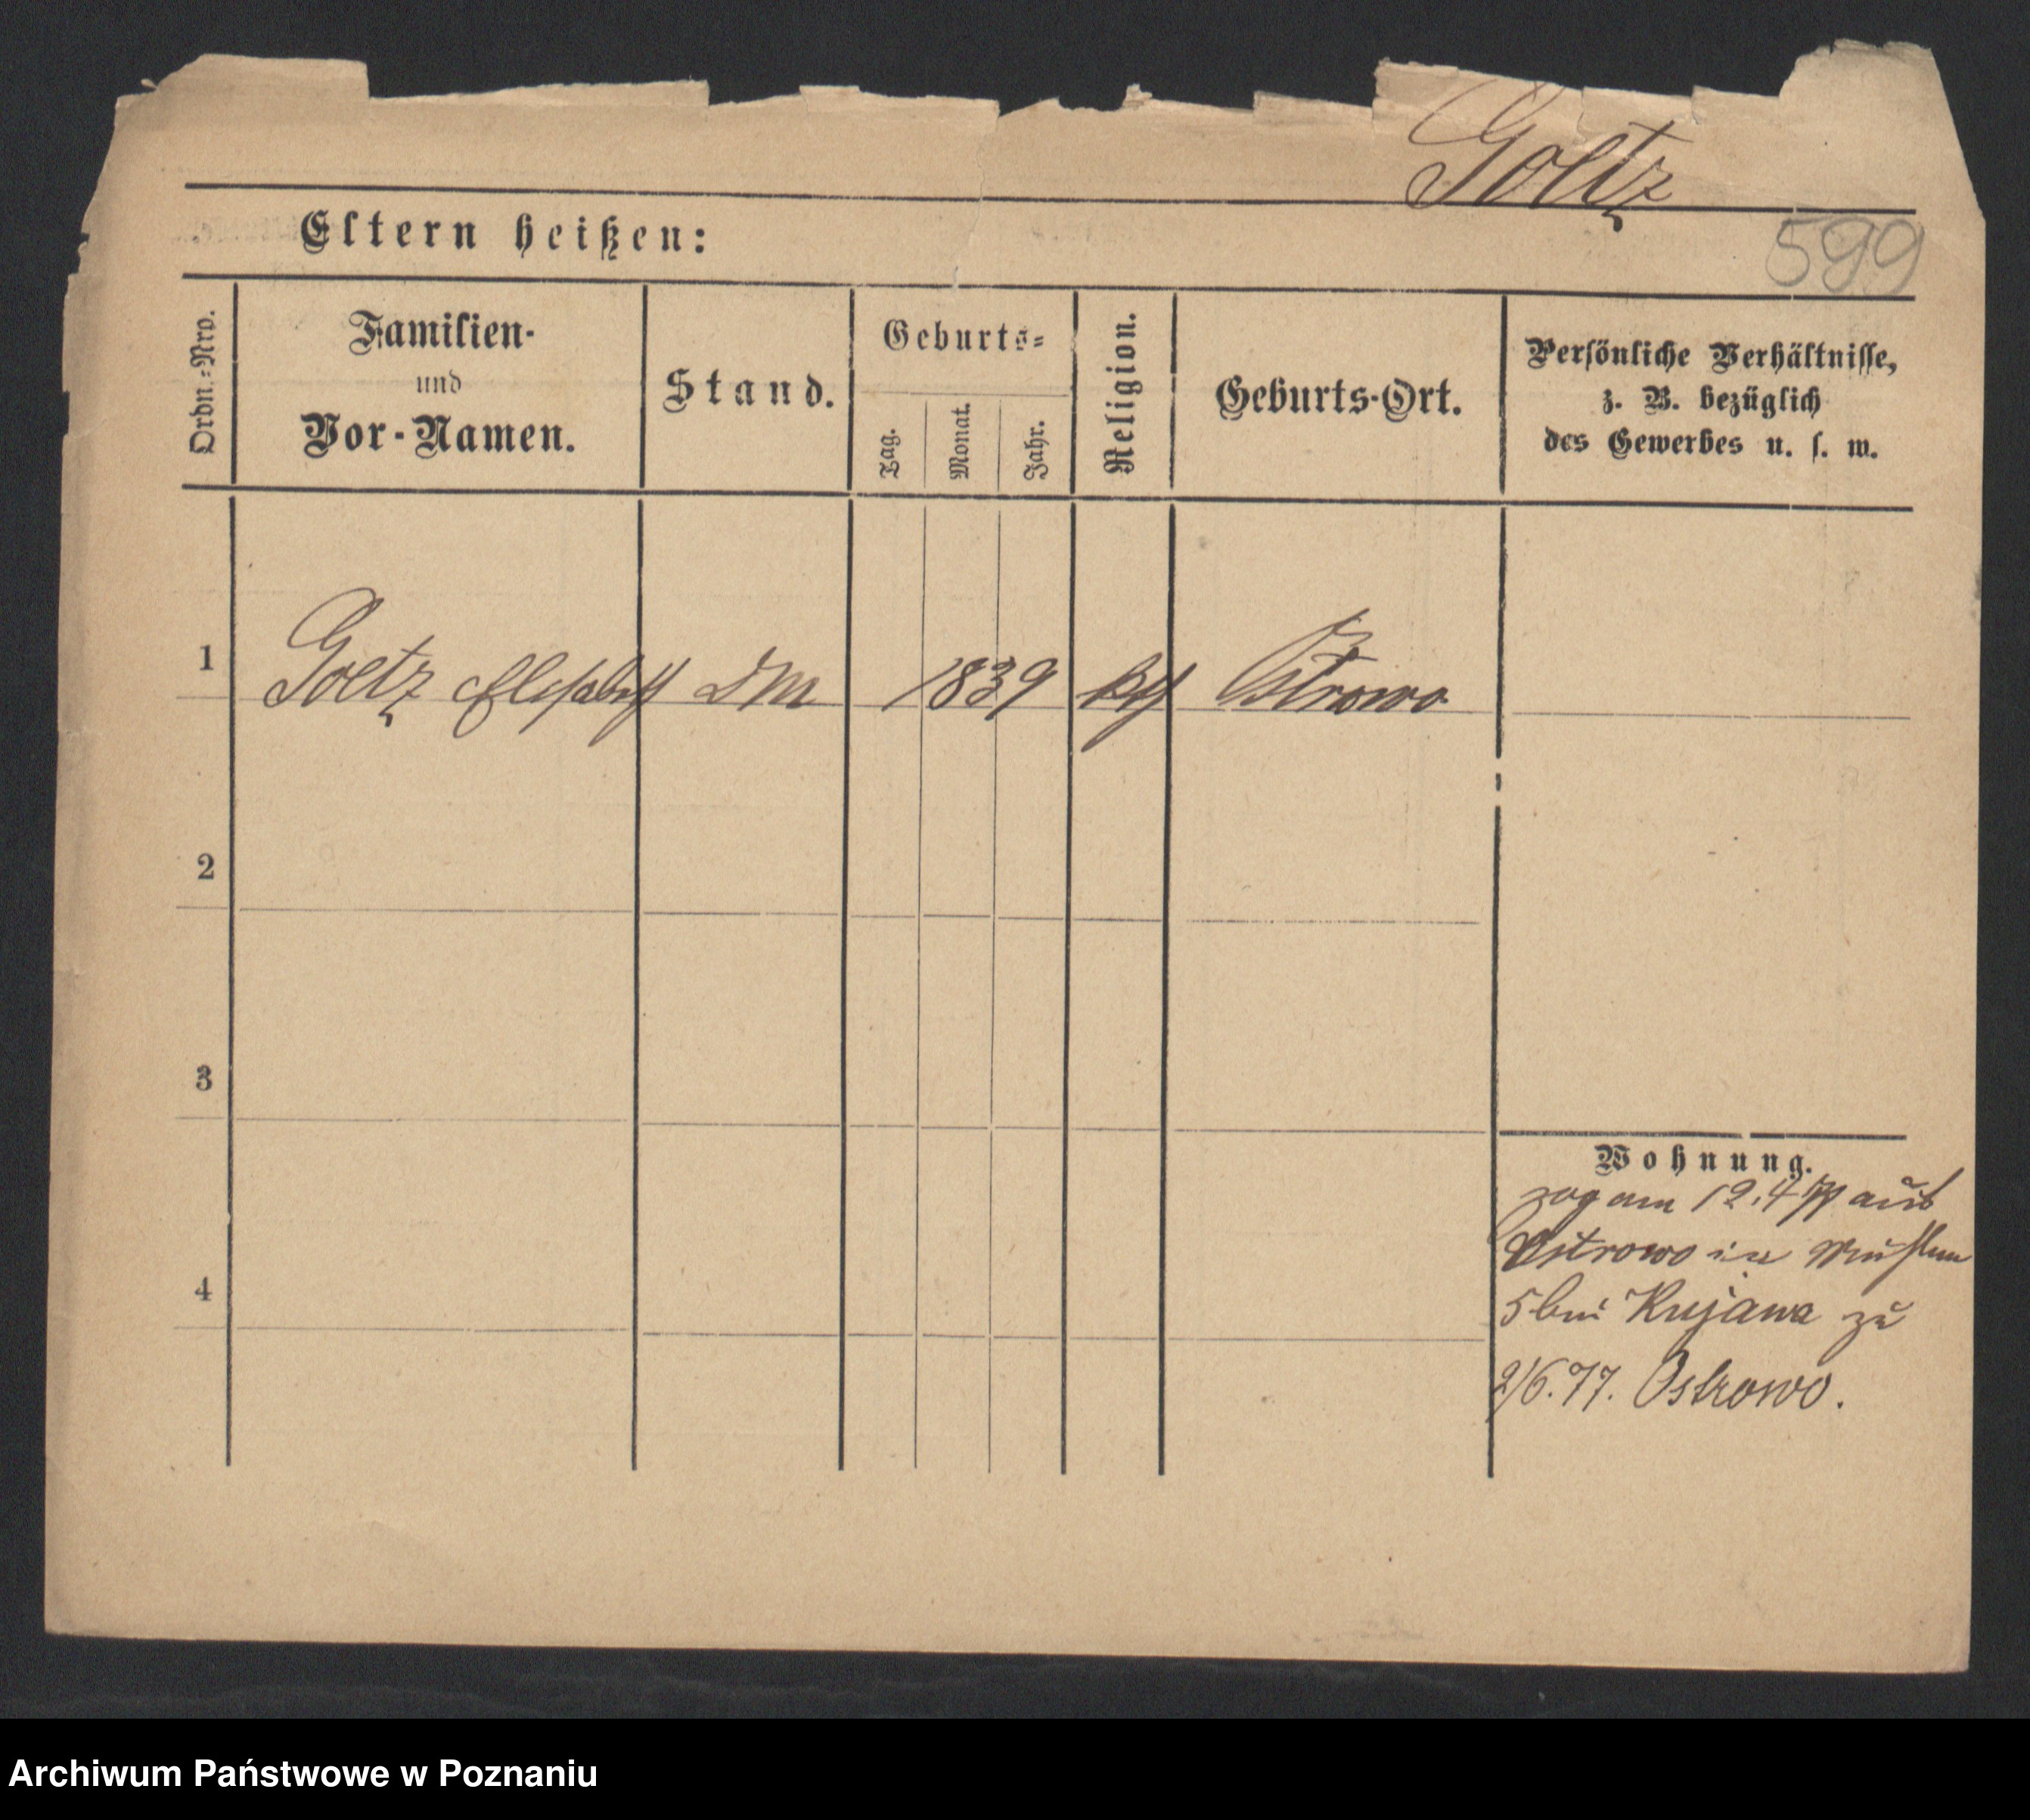 Goltz
599
Eltern heißen:
Ordn.-Nro.
Familien-
und
Vor-Namen.
Stand.
Geburts-
Tag.
Monat.
Jahr.
Religion.
Geburts-Ort.
Persönliche Verhältnisse,
z. B. bezüglich
des Gewerbes u. s. w.
1 Goltz Elisabeth DM 1839 kth Ostrowo
2
3
4
Wohnung.
zog am 12.4 77 aus
Ostrowo in
5 bei Kujawa zu
2/6.77. Ostrowo.
Archiwum Państwowe w Poznaniu